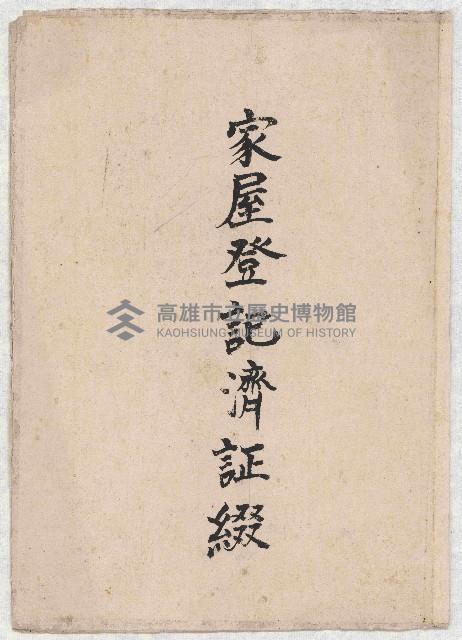 家屋登記濟証綴
高雄市立歷史博物館
KAOHSIUNG MUSEUM OF HISTORY